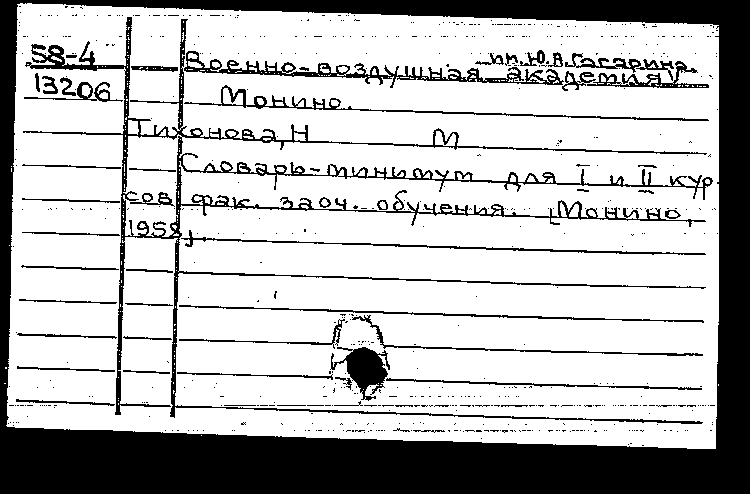 58-4
им. Ю.А. Гагарина.
Военно-воздушная академия
13206
Монино.
Тихонова, Н М
Словарь-минимум для I и II кур
сов фак. заоч. обучения. [Монино,
1958].